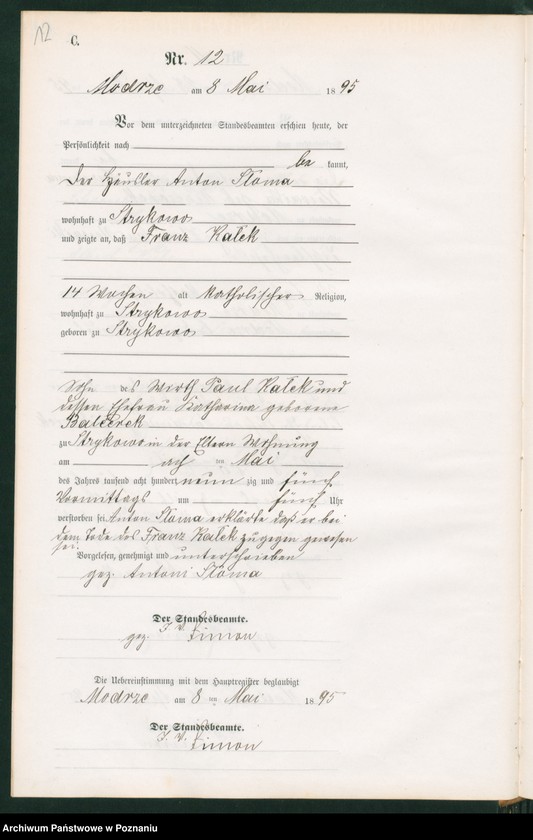 12
C.
Nr. 12
Modrze am 8 Mai 1895
Vor dem unterzeichneten Standesbeamten erschien heute, der
Persönlichkeit nach
be kannt,
der Häusler Anton Słoma
wohnhaft zu Strykowo
und zeigte an, daß Franz Kałek
14 Wochen alt katholischer Religion,
wohnhaft zu Strykowo
geboren zu Strykowo
Sohn des Wirth Paul Kałek und
dessen Ehefrau Katharina geborene
Balcerek
zu Strykowo in der Eltern Wohnung
am acht ten Mai
des Jahres tausend acht hundert neun zig und fünf
Vormittags um fünf Uhr
verstorben sei. Anton Słoma erklärte daß er bei
dem Tode des Franz Kałek zugegen gewesen
sei.
Vorgelesen, genehmigt und unterschrieben
gez. Antoni Słoma
Der Standesbeamte.
J. V.
gez. Simon
Die Uebereinstimmung mit dem Hauptregister beglaubigt
Modrze am 8 ten Mai 1895
Der Standesbeamte.
J. V. Simon
Archiwum Państwowe w Poznaniu